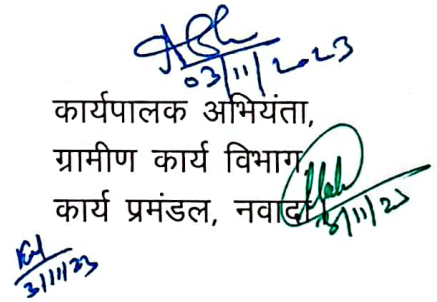 03/11/2023
कार्यपालक अभियंता,
ग्रामीण कार्य विभाग,
कार्य प्रमंडल, नवादा
3/11/23
3/11/23